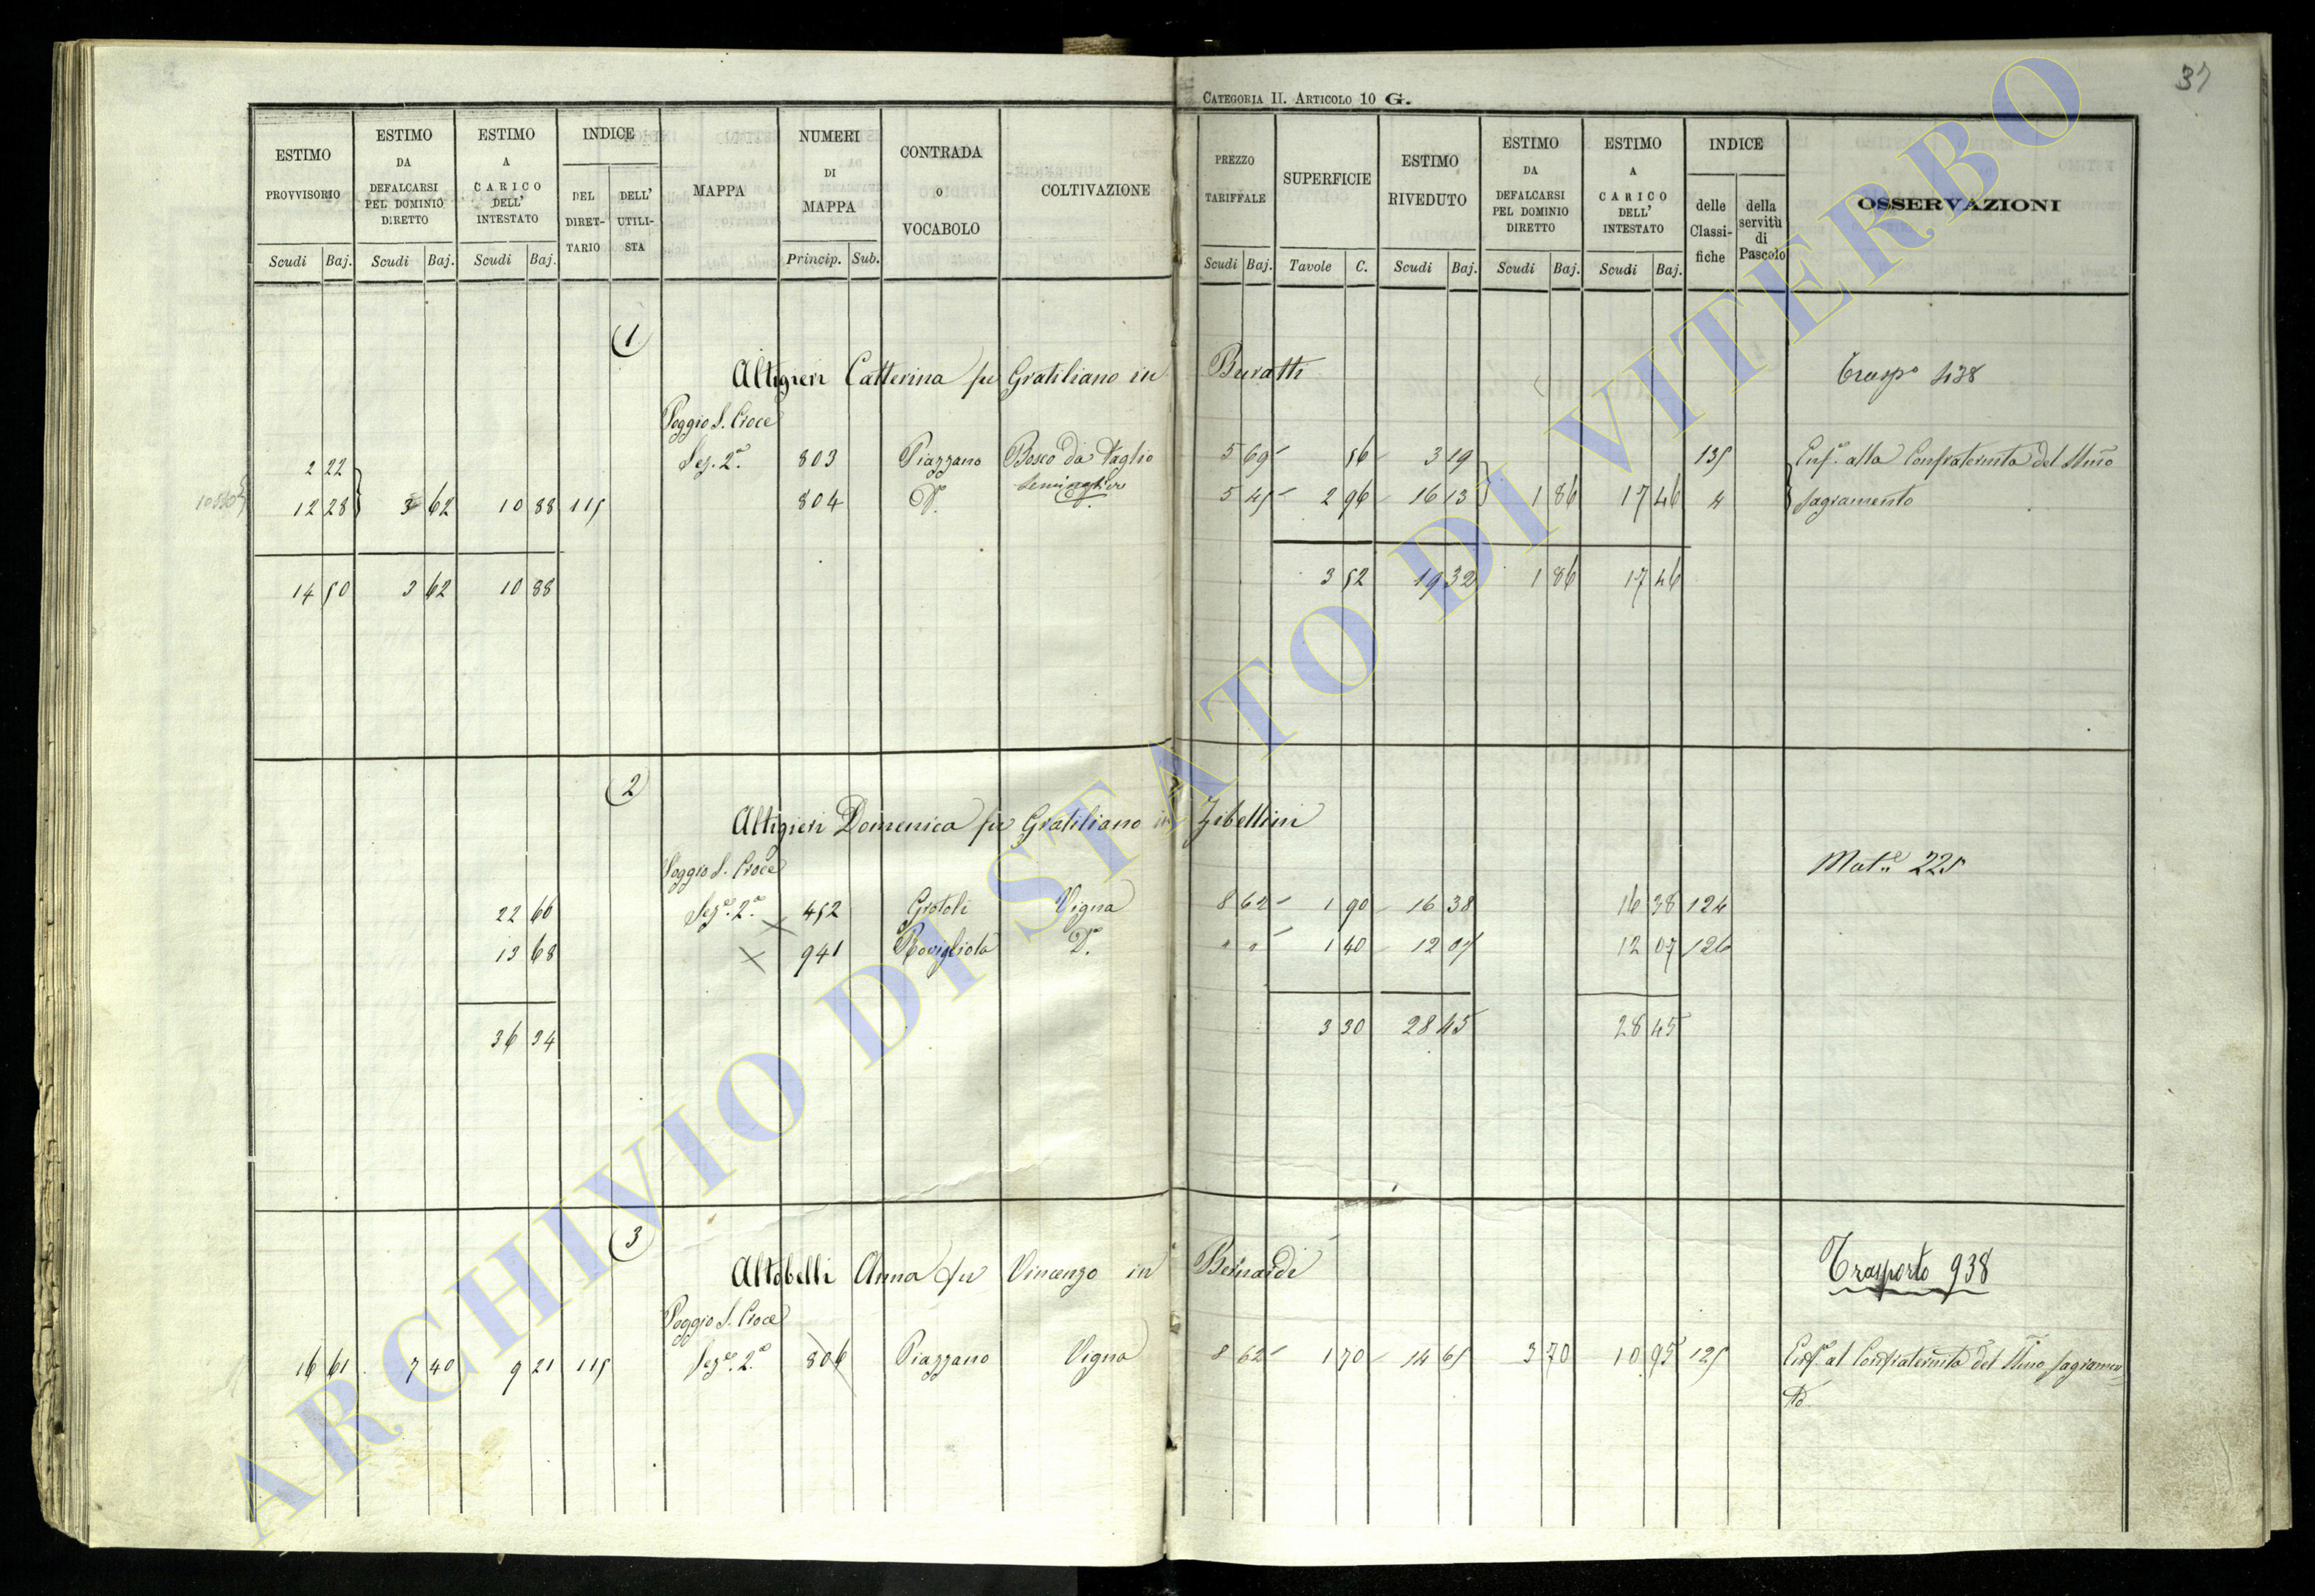 37
CATEGORIA II. ARTICOLO 10 G.
ESTIMO PROVVISORIO
ESTIMO DA DEFALCARSI PEL DOMINIO DIRETTO
ESTIMO A CARICO DELL' INTESTATO
INDICE
DEL DIRETTARIO
DELL' UTILISTA
MAPPA
NUMERI DI MAPPA
CONTRADA O VOCABOLO
COLTIVAZIONE
PREZZO TARIFFALE
SUPERFICIE
ESTIMO RIVEDUTO
ESTIMO DA DEFALCARSI PEL DOMINIO DIRETTO
ESTIMO A CARICO DELL' INTESTATO
INDICE
delle Classifiche
della servitù di Pascolo
OSSERVAZIONI
Scudi Baj. Scudi Baj. Scudi Baj. Princip. Sub. Scudi Baj. Tavole C. Scudi Baj. Scudi Baj. Scudi Baj.
1
Altigieri Catterina fu Gratiliano in Buratti
Trasp.o 438
Poggio S. Croce
2 22 Sez. 2.a 803 Piazzano Bosco da Taglio 5 69 56 3 19 135 Enf. alla Confraternita del SSmo
12 28 3 62 10 88 115 804 D.o D. 5 45 2 96 16 13 1 86 17 46 4 Sagramento
14 50 3 62 10 88 3 52 19 32 1 86 17 46
2
Altigieri Domenica fu Gratiliano in Zibellini
Mat.e 225
Poggio S. Croce
22 66 Sez.e 2.a 452 Grotoli Vigna 8 62 1 90 16 38 16 38 124
13 68 941 Rovigliola D.a " " 1 40 12 07 12 07 126
36 34 3 30 28 45 28 45
3
Altobelli Anna fu Vincenzo in Bernardi
Trasporto 938
Poggio S. Croce
16 61 7 40 9 21 115 Sez.e 2.a 806 Piazzano Vigna 8 62 1 70 14 65 3 70 10 95 125 Enf. al Confraternita del SSmo Sagramen
to
ARCHIVIO DI STATO DI VITERBO